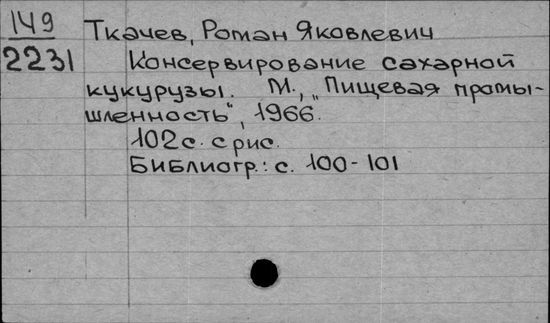 149
2231
Ткачев, Роман Яковлевич
Консервирование сахарной
кукурузы. М., „Пищевая промы-
шленность", 1966.
102с. с рис.
Библиогр.: с. 100-101